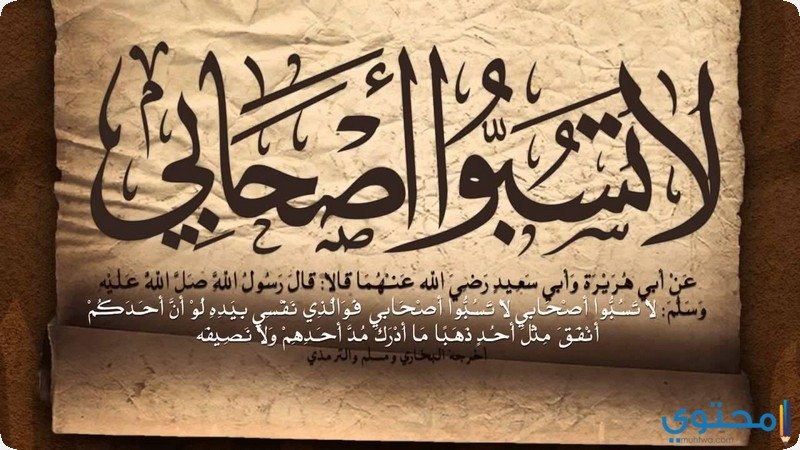 لَا تَسُبُّوا أَصْحَابِي
عَنْ أَبي هُرَيْرَةَ وَأَبي سَعِيدٍ رَضيَ الله عَنْهُمَا قالا: قَالَ رَسُولُ اللَّهِ صَلَّ اللَّهُ عَلَيْهِ
وَسَلَّمَ: لاَ تَسُبُّوا أَصْحَابِي لاَ تَسُبُّوا أَصْحَابي فَوَالَّذي نَفْسي بيَدِهِ لَوْ أَنَّ أَحَدَكُمْ
أَنْفَقَ مِثْلَ أُحُدٍ ذَهَبًا مَا أَدْرَكَ مُدَّ أَحَدِهِمْ وَلاَ نَصِيفَه
أخرجه البخاري ومسلم والترمذي
محتوي
muhtwa.com